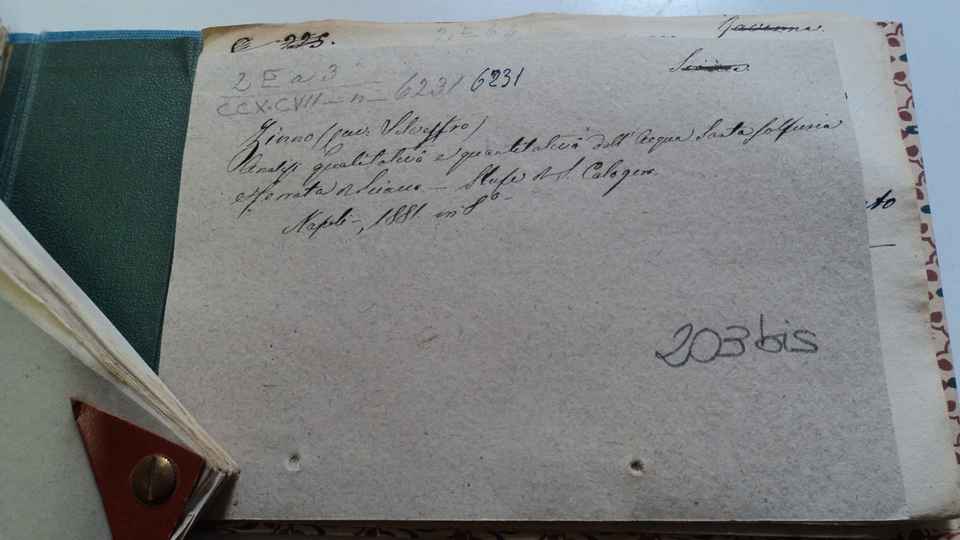 C 225.
Sciacca.
2 E a 3
CCXCVII - n - 6231 6231
Zinno (Cav. Silvestro)
Analisi qualitativa e quantitativa dell'Acqua Santa Solfurea
e ferrata di Sciacca - Stufe di S. Calogero
Napoli, 1881 in 8°
203 bis